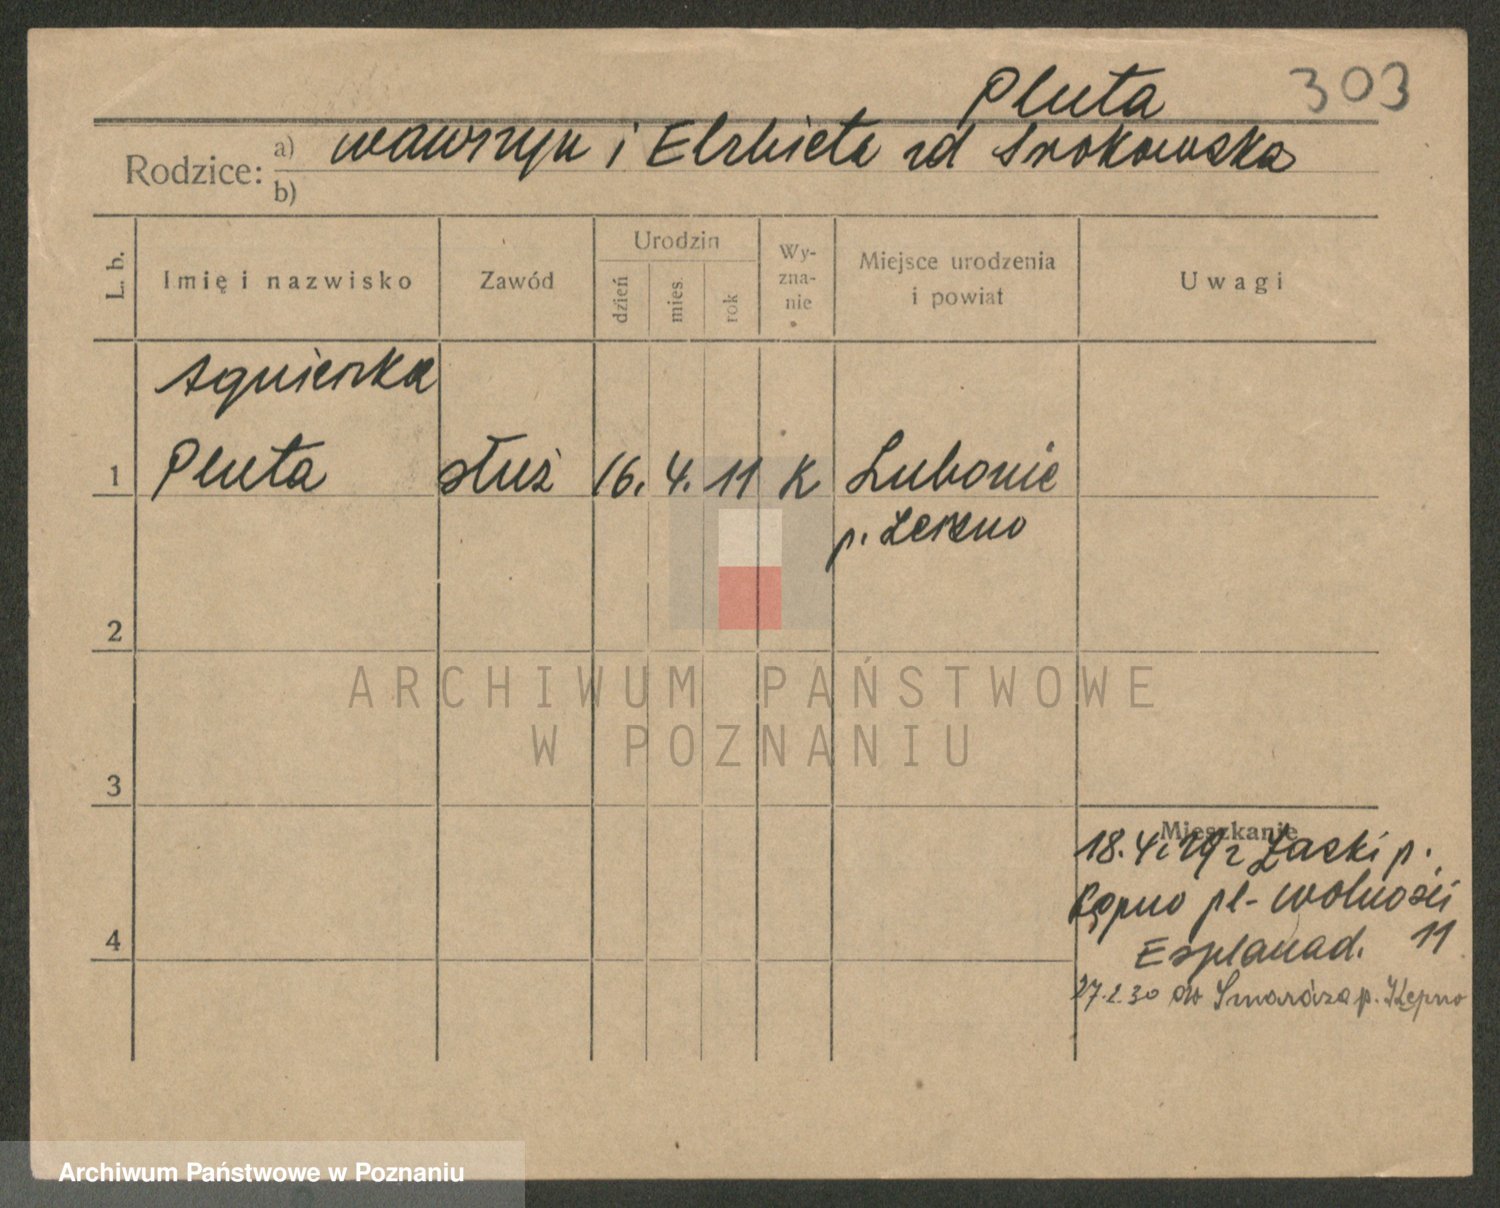 Pluta 303
Rodzice: a) Wawrzyn i Elżbieta zd Srokowska
b)
L. b. Imię i nazwisko Zawód Urodzin dzień mies. rok Wyznanie Miejsce urodzenia i powiat Uwagi
Agnieszka
1 Pluta służ 16. 4. 11 K Lubonie
p. Leszno
2
3
Mieszkanie
18.4.29 z Łaski p.
Kępno pl- Wolności
4 Esplanad. 11
27.2.30 do Smardza p. Kępno
ARCHIWUM PAŃSTWOWE
W POZNANIU
Archiwum Państwowe w Poznaniu